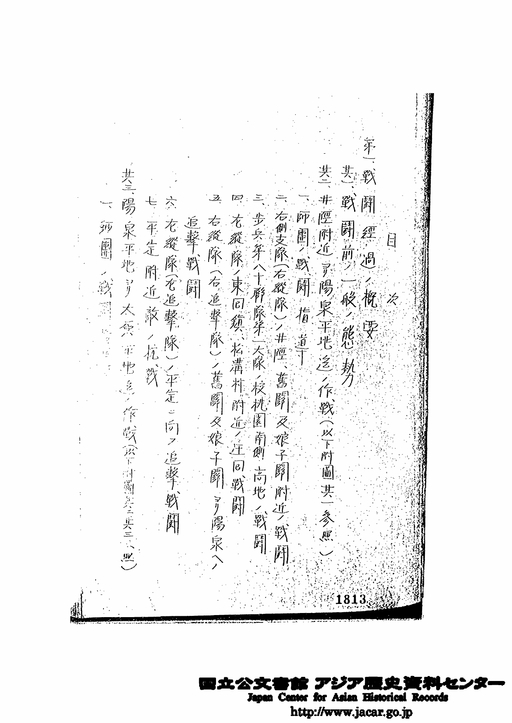 目次
第一、戦闘經過ノ概要
其一、戦闘前ノ一般ノ態勢
其二、井陘附近ヨリ陽泉平地迄ノ作戦(以下附圖其一参照)
一、師團ノ戦闘指導
二、右側支隊(右縦隊)ノ井陘、舊關及娘子關附近ノ戦闘
三、歩兵第八十聯隊第一大隊ノ核桃園南側高地ノ戦闘
四、左縦隊ノ東回鎮、松溝村附近ノ庄同戦闘
五、右縦隊(右追撃隊)ノ舊關及娘子關ヨリ陽泉ヘノ
追撃戦闘
六、左縦隊(左追撃隊)ノ平定ニ向フ追撃戦闘
七、平定附近敵ノ抗戦
其三、陽泉平地ヨリ太原平地迄ノ作戦(以下附圖其二其三 照)
一、師團ノ戦
1813
国立公文書館 アジア歴史資料センター
Japan Center for Asian Historical Records
http://www.jacar.go.jp